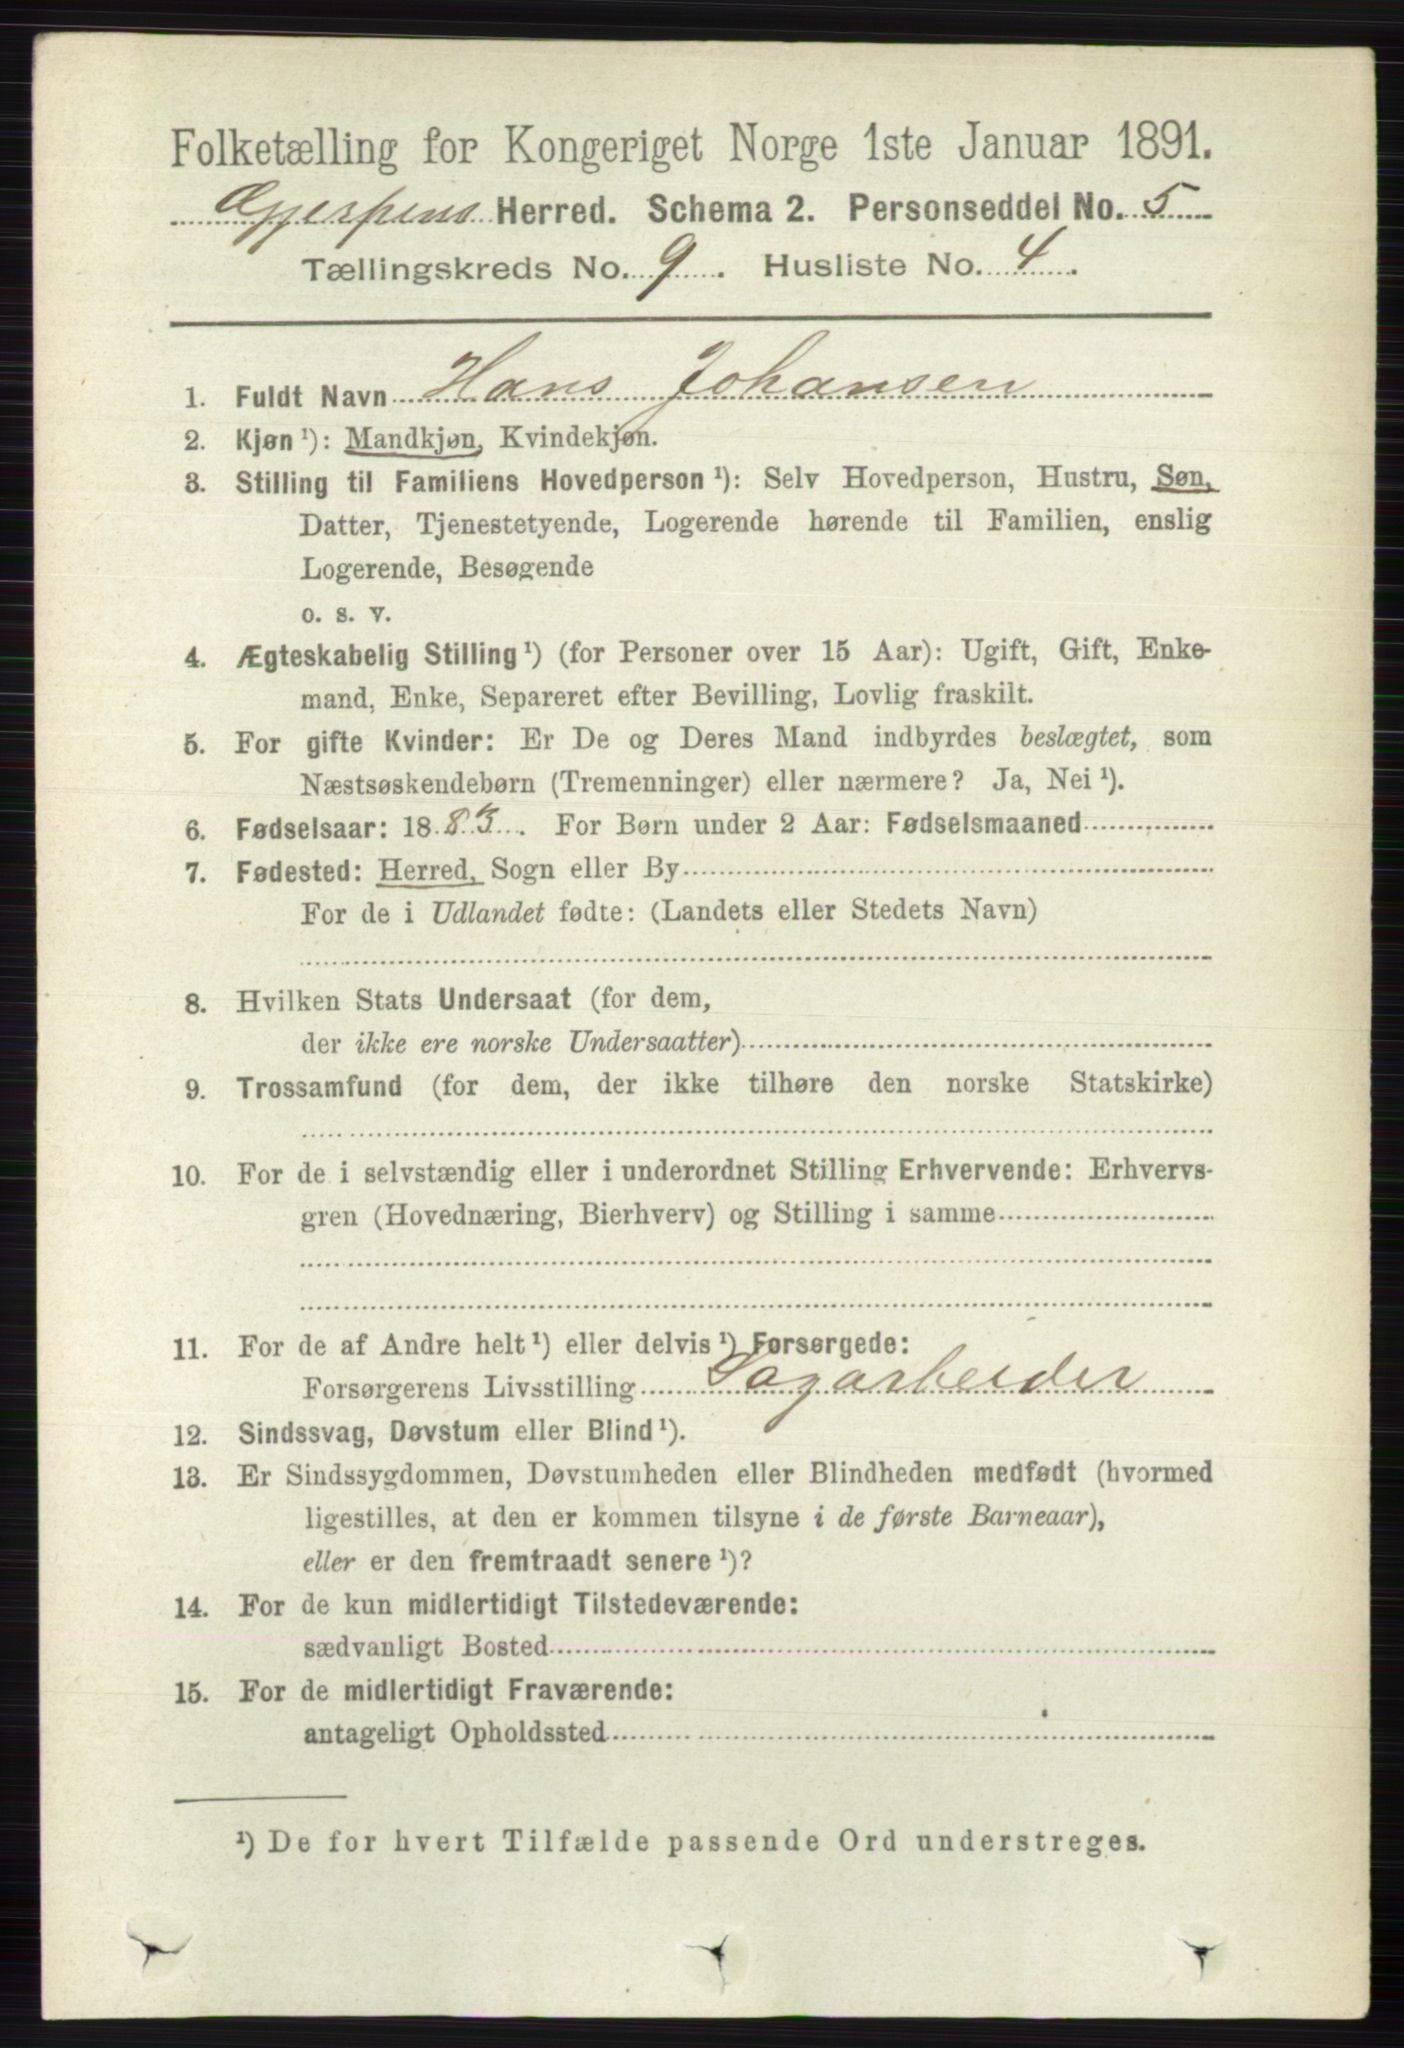 Folketælling for Kongeriget Norge 1ste Januar 1891.
Gjerpens Herred. Schema 2. Personseddel No. 5
Tællingskreds No. 9. Husliste No. 4.
1. Fuldt Navn Hans Johansen
2. Kjøn ¹): Mandkjøn, Kvindekjøn.
3. Stilling til Familiens Hovedperson ¹): Selv Hovedperson, Hustru, Søn,
Datter, Tjenestetyende, Logerende hørende til Familien, enslig
Logerende, Besøgende
o. s. v.
4. Ægteskabelig Stilling ¹) (for Personer over 15 Aar): Ugift, Gift, Enke-
mand, Enke, Separeret efter Bevilling, Lovlig fraskilt.
5. For gifte Kvinder: Er De og Deres Mand indbyrdes beslægtet, som
Næstsøskendebørn (Tremenninger) eller nærmere? Ja, Nei ¹).
6. Fødselsaar: 1883. For Børn under 2 Aar: Fødselsmaaned
7. Fødested: Herred, Sogn eller By
For de i Udlandet fødte: (Landets eller Stedets Navn)
8. Hvilken Stats Undersaat (for dem,
der ikke ere norske Undersaatter)
9. Trossamfund (for dem, der ikke tilhøre den norske Statskirke)
10. For de i selvstændig eller i underordnet Stilling Erhvervende: Erhvervs-
gren (Hovednæring, Bierhverv) og Stilling i samme
11. For de af Andre helt ¹) eller delvis ¹) Forsørgede:
Forsørgerens Livsstilling Sagarbeider
12. Sindssvag, Døvstum eller Blind ¹).
13. Er Sindssygdommen, Døvstumheden eller Blindheden medfødt (hvormed
ligestilles, at den er kommen tilsyne i de første Barneaar),
eller er den fremtraadt senere ¹)?
14. For de kun midlertidigt Tilstedeværende:
sædvanligt Bosted
15. For de midlertidigt Fraværende:
antageligt Opholdssted
¹) De for hvert Tilfælde passende Ord understreges.